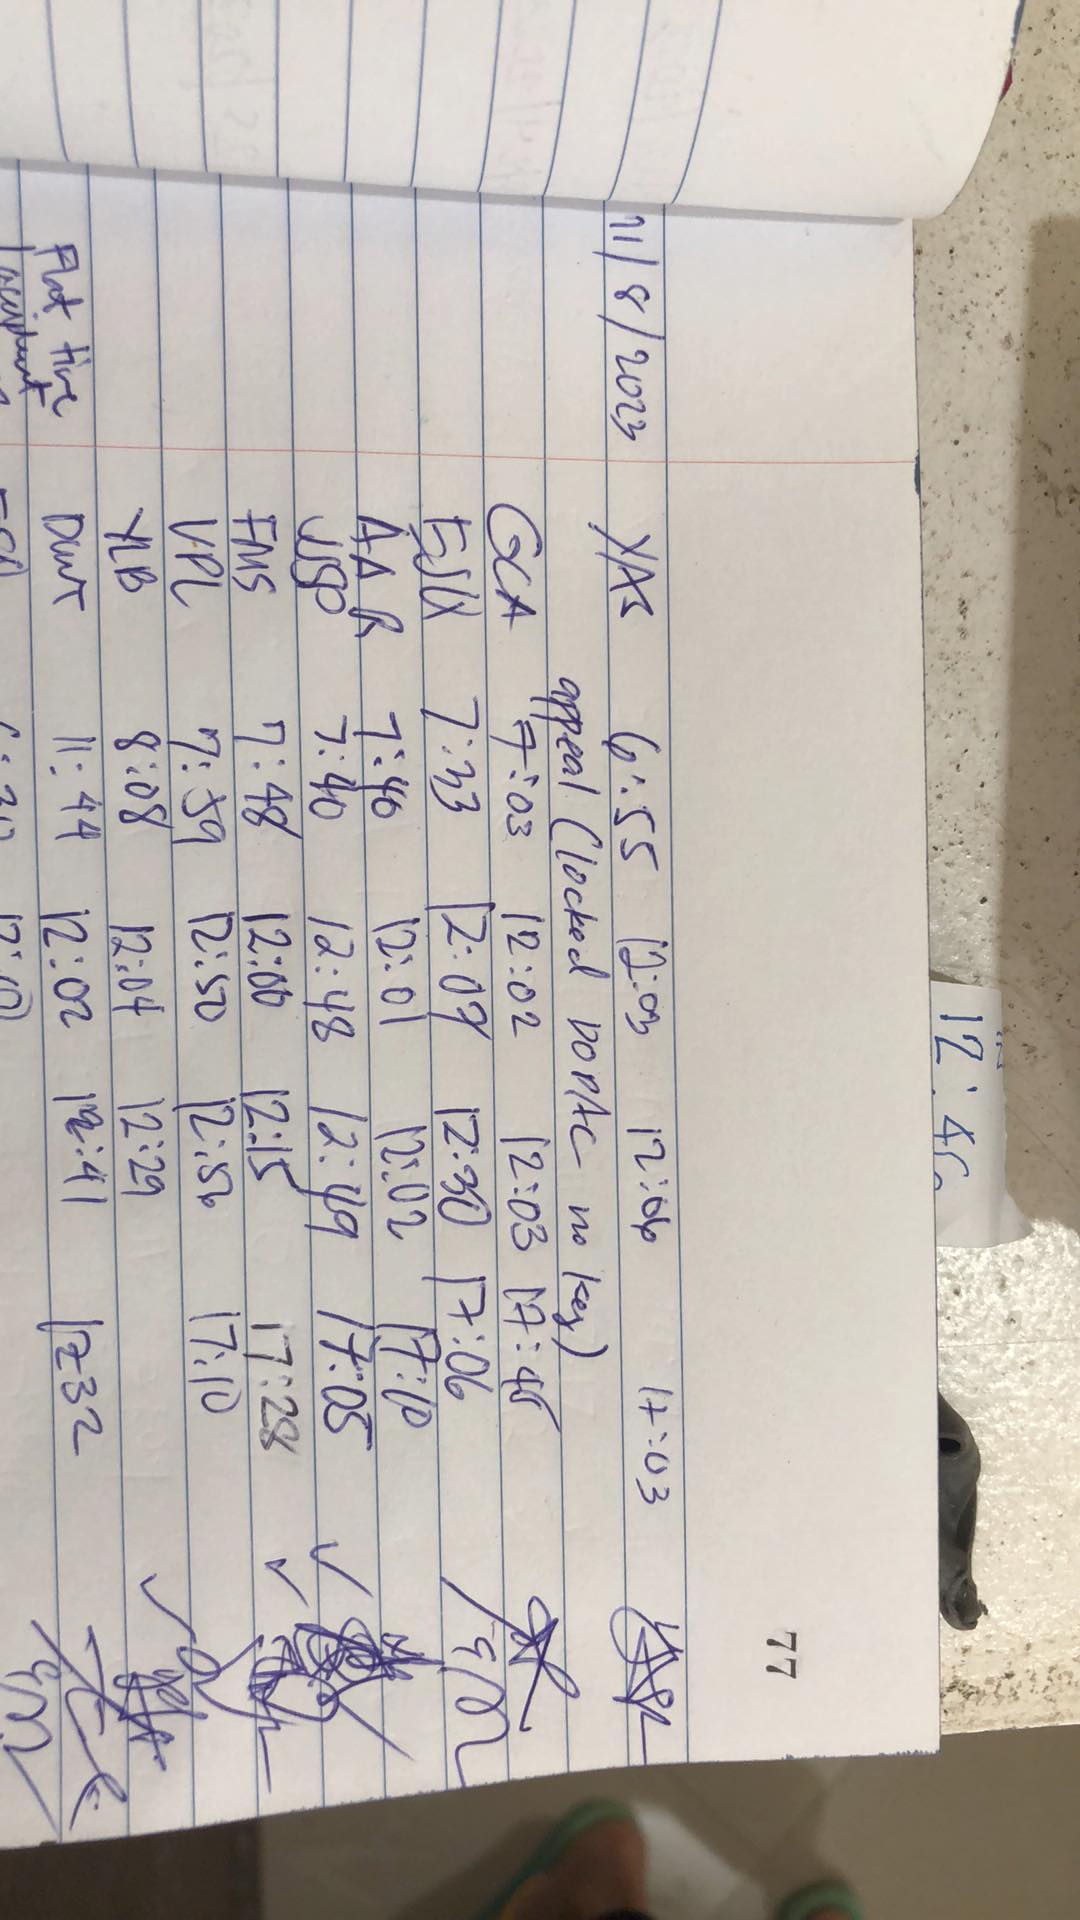 77
21/8/2023 YAS 6:55 12:03 12:06 17:03
appeal (locked no key)
GCA 7:03 12:02 12:03 17:45
EJU 7:33 12:09 12:30 17:06
AAR 7:40 12:01 12:02 17:10
JSP 7:40 12:48 12:49 17:05
FMS 7:48 12:00 12:15 17:28
VPL 7:59 12:50 12:56 17:10
YLB 8:08 12:04 12:29
11:44 12:02 12:41 17:32
12:46